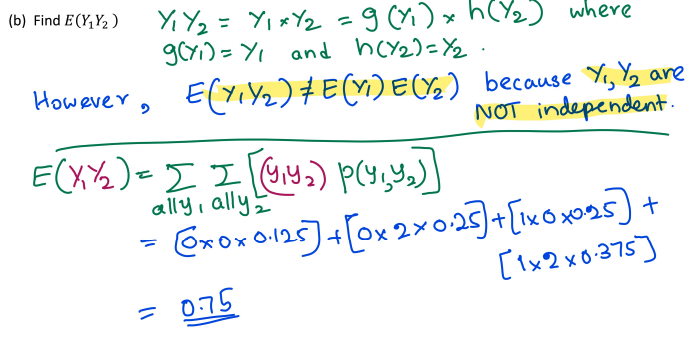 (b) Find E(Y₁Y₂)
Y₁Y₂ = Y₁*Y₂ = g(Y₁) * h(Y₂) where
g(Y₁) = Y₁ and h(Y₂) = Y₂ .
However, E(Y₁Y₂) ≠ E(Y₁) E(Y₂) because Y₁, Y₂ are
NOT independent.
E(Y₁Y₂) = Σ Σ [(y₁y₂) p(y₁,y₂)]
all y₁ all y₂
= [0x0x0.125] + [0x2x0.25] + [1x0x0.25] +
[1x2x0.375]
= 0.75